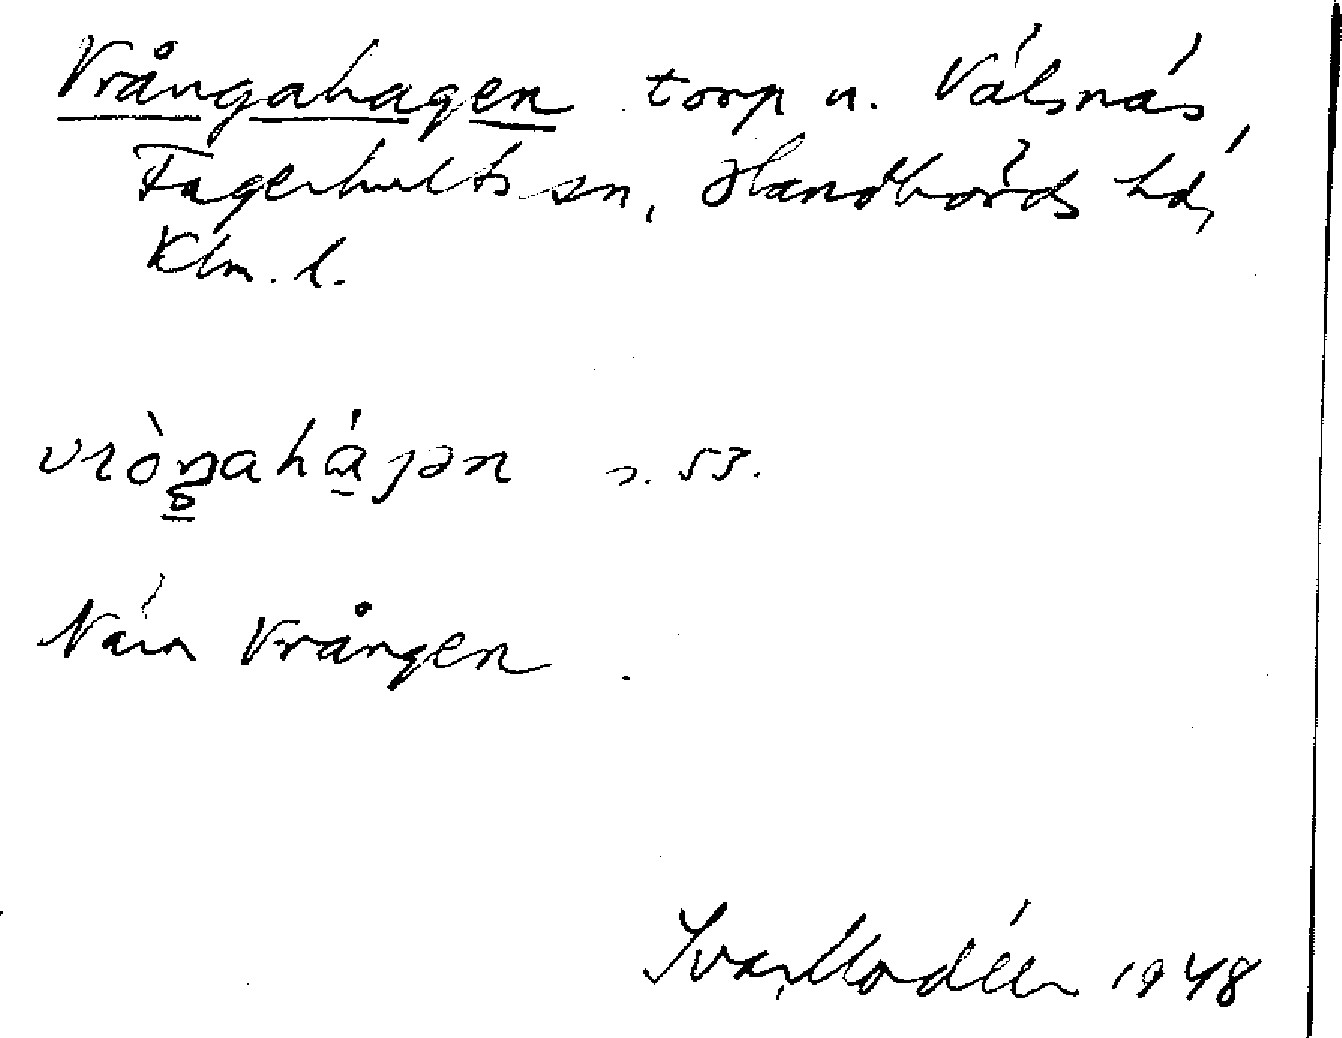 Vrångahagen torp u. Välsnäs,
Fagerhults sn, Handbörds hd,
Klm. l.
vròŋahájən s. 53.
Nära Vrången.
Ivar Modéer 1948